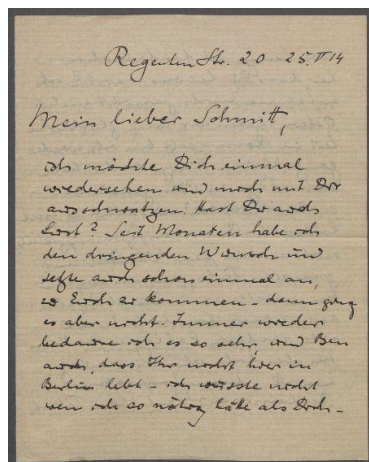 Regenten Str. 20 25. VI 14
Mein lieber Schmitt,
ich möchte Dich einmal
wiedersehen und mich mit Dir
ausschwatzen. Hast Du auch
Lust? Seit Monaten habe ich
den dringenden Wunsch und
setzte auch schon einmal an,
zu Euch zu kommen – dann ging
es aber nicht. Immer wieder
bedaure ich es so sehr, und Ben
auch, dass Ihr nicht hier in
Berlin lebt – ich wüsste nicht
wen ich so nötig hätte als Dich –